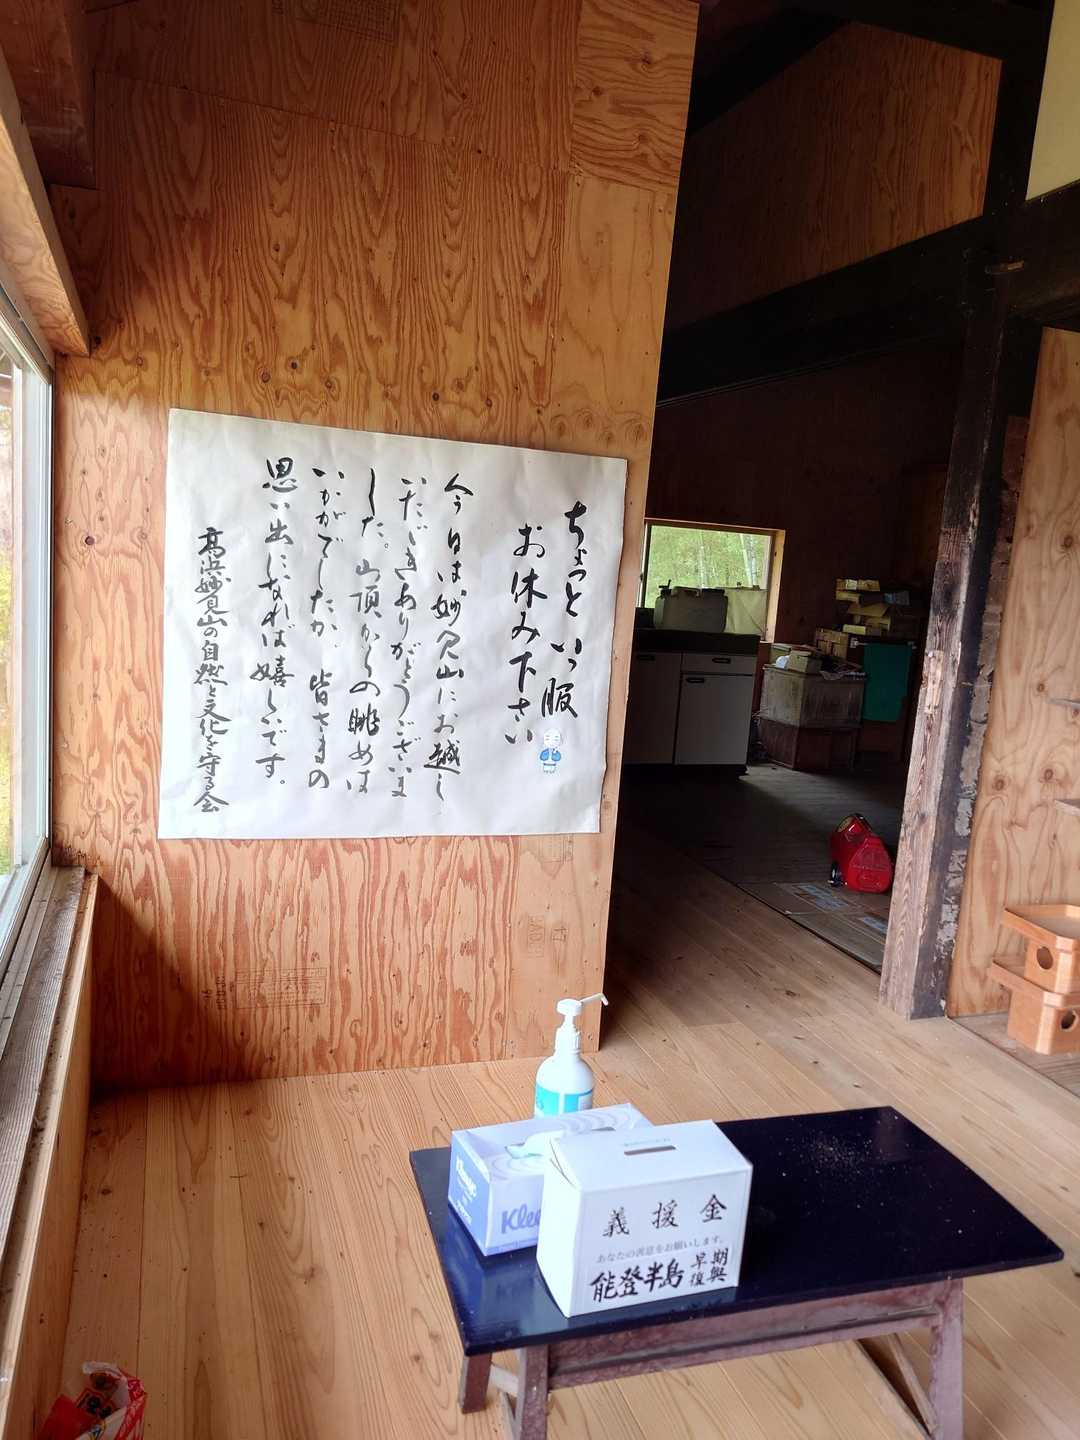 ちょっといっ服
お休み下さい
今日は妙見山にお越し
いただきありがとうございま
した。山頂からの眺めは
いかがでしたか、皆さまの
思い出になれば嬉しいです。
高浜妙見山の自然と文化を守る会
Kleenex
Klee
義援金
あなたの善意をお願いします。
能登半島 早期復興